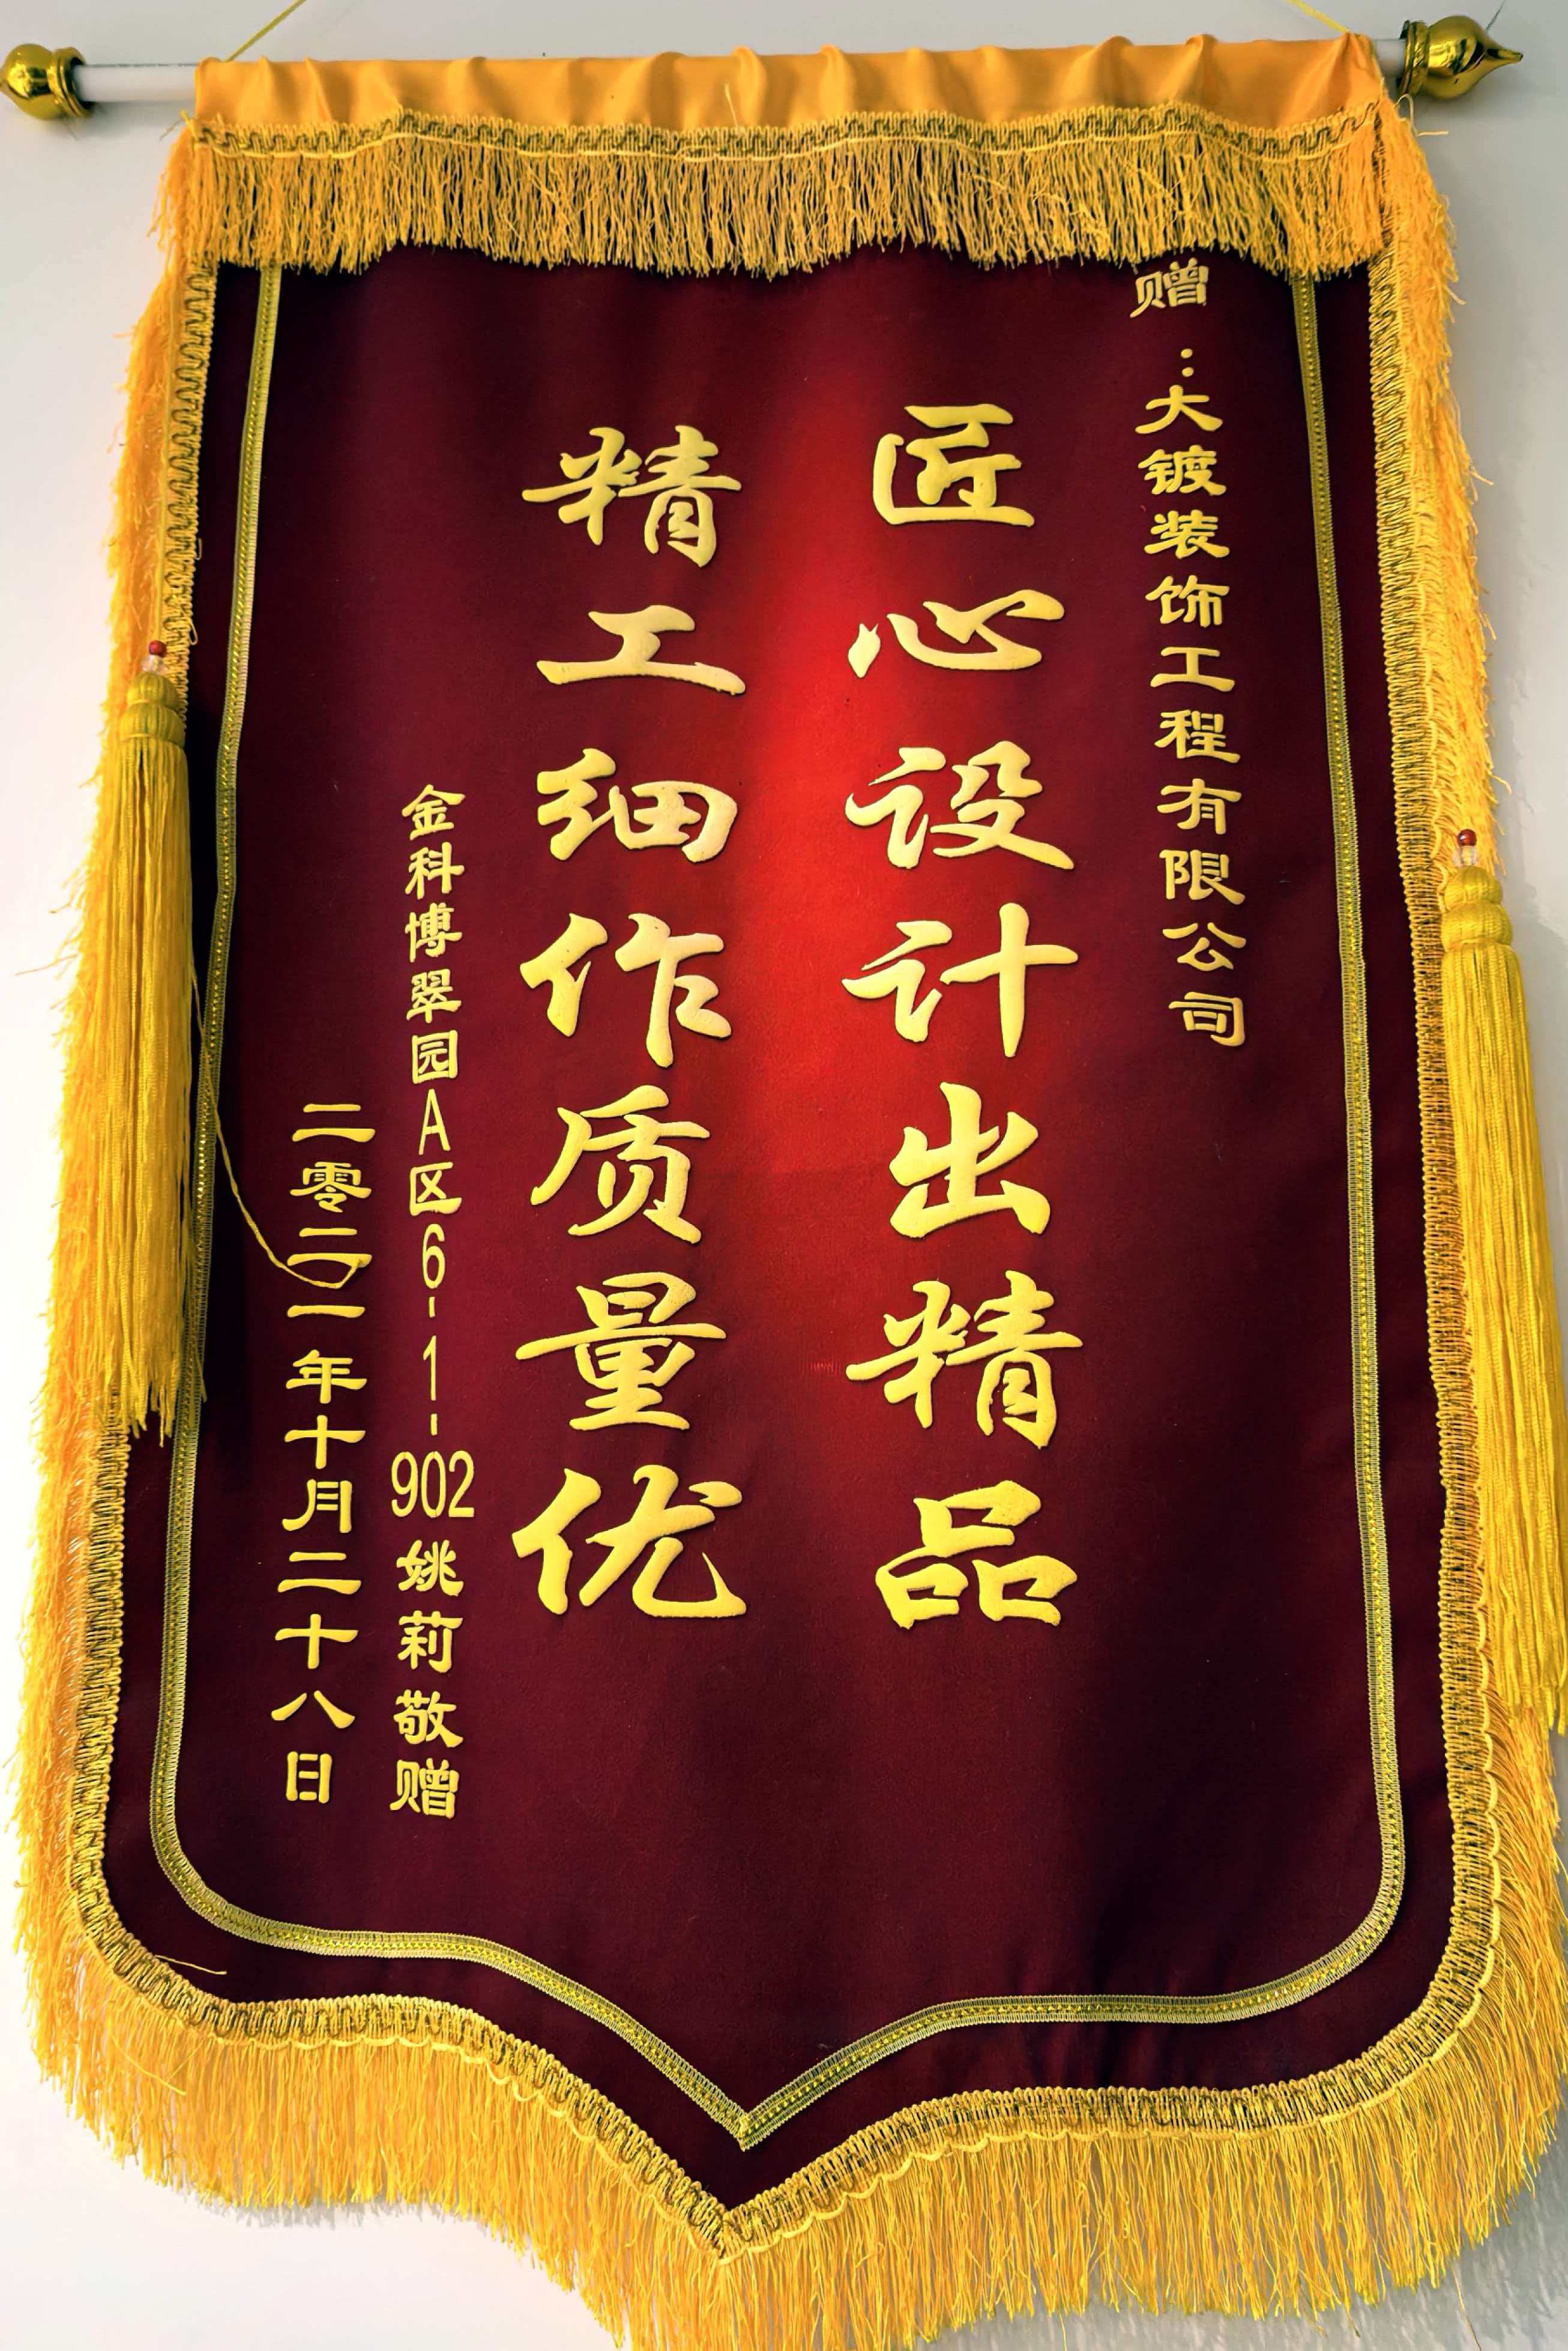 赠：大镀装饰工程有限公司
匠心设计出精品
精工细作质量优
金科博翠园A区6-1-902姚莉敬赠
二零二一年十月二十八日